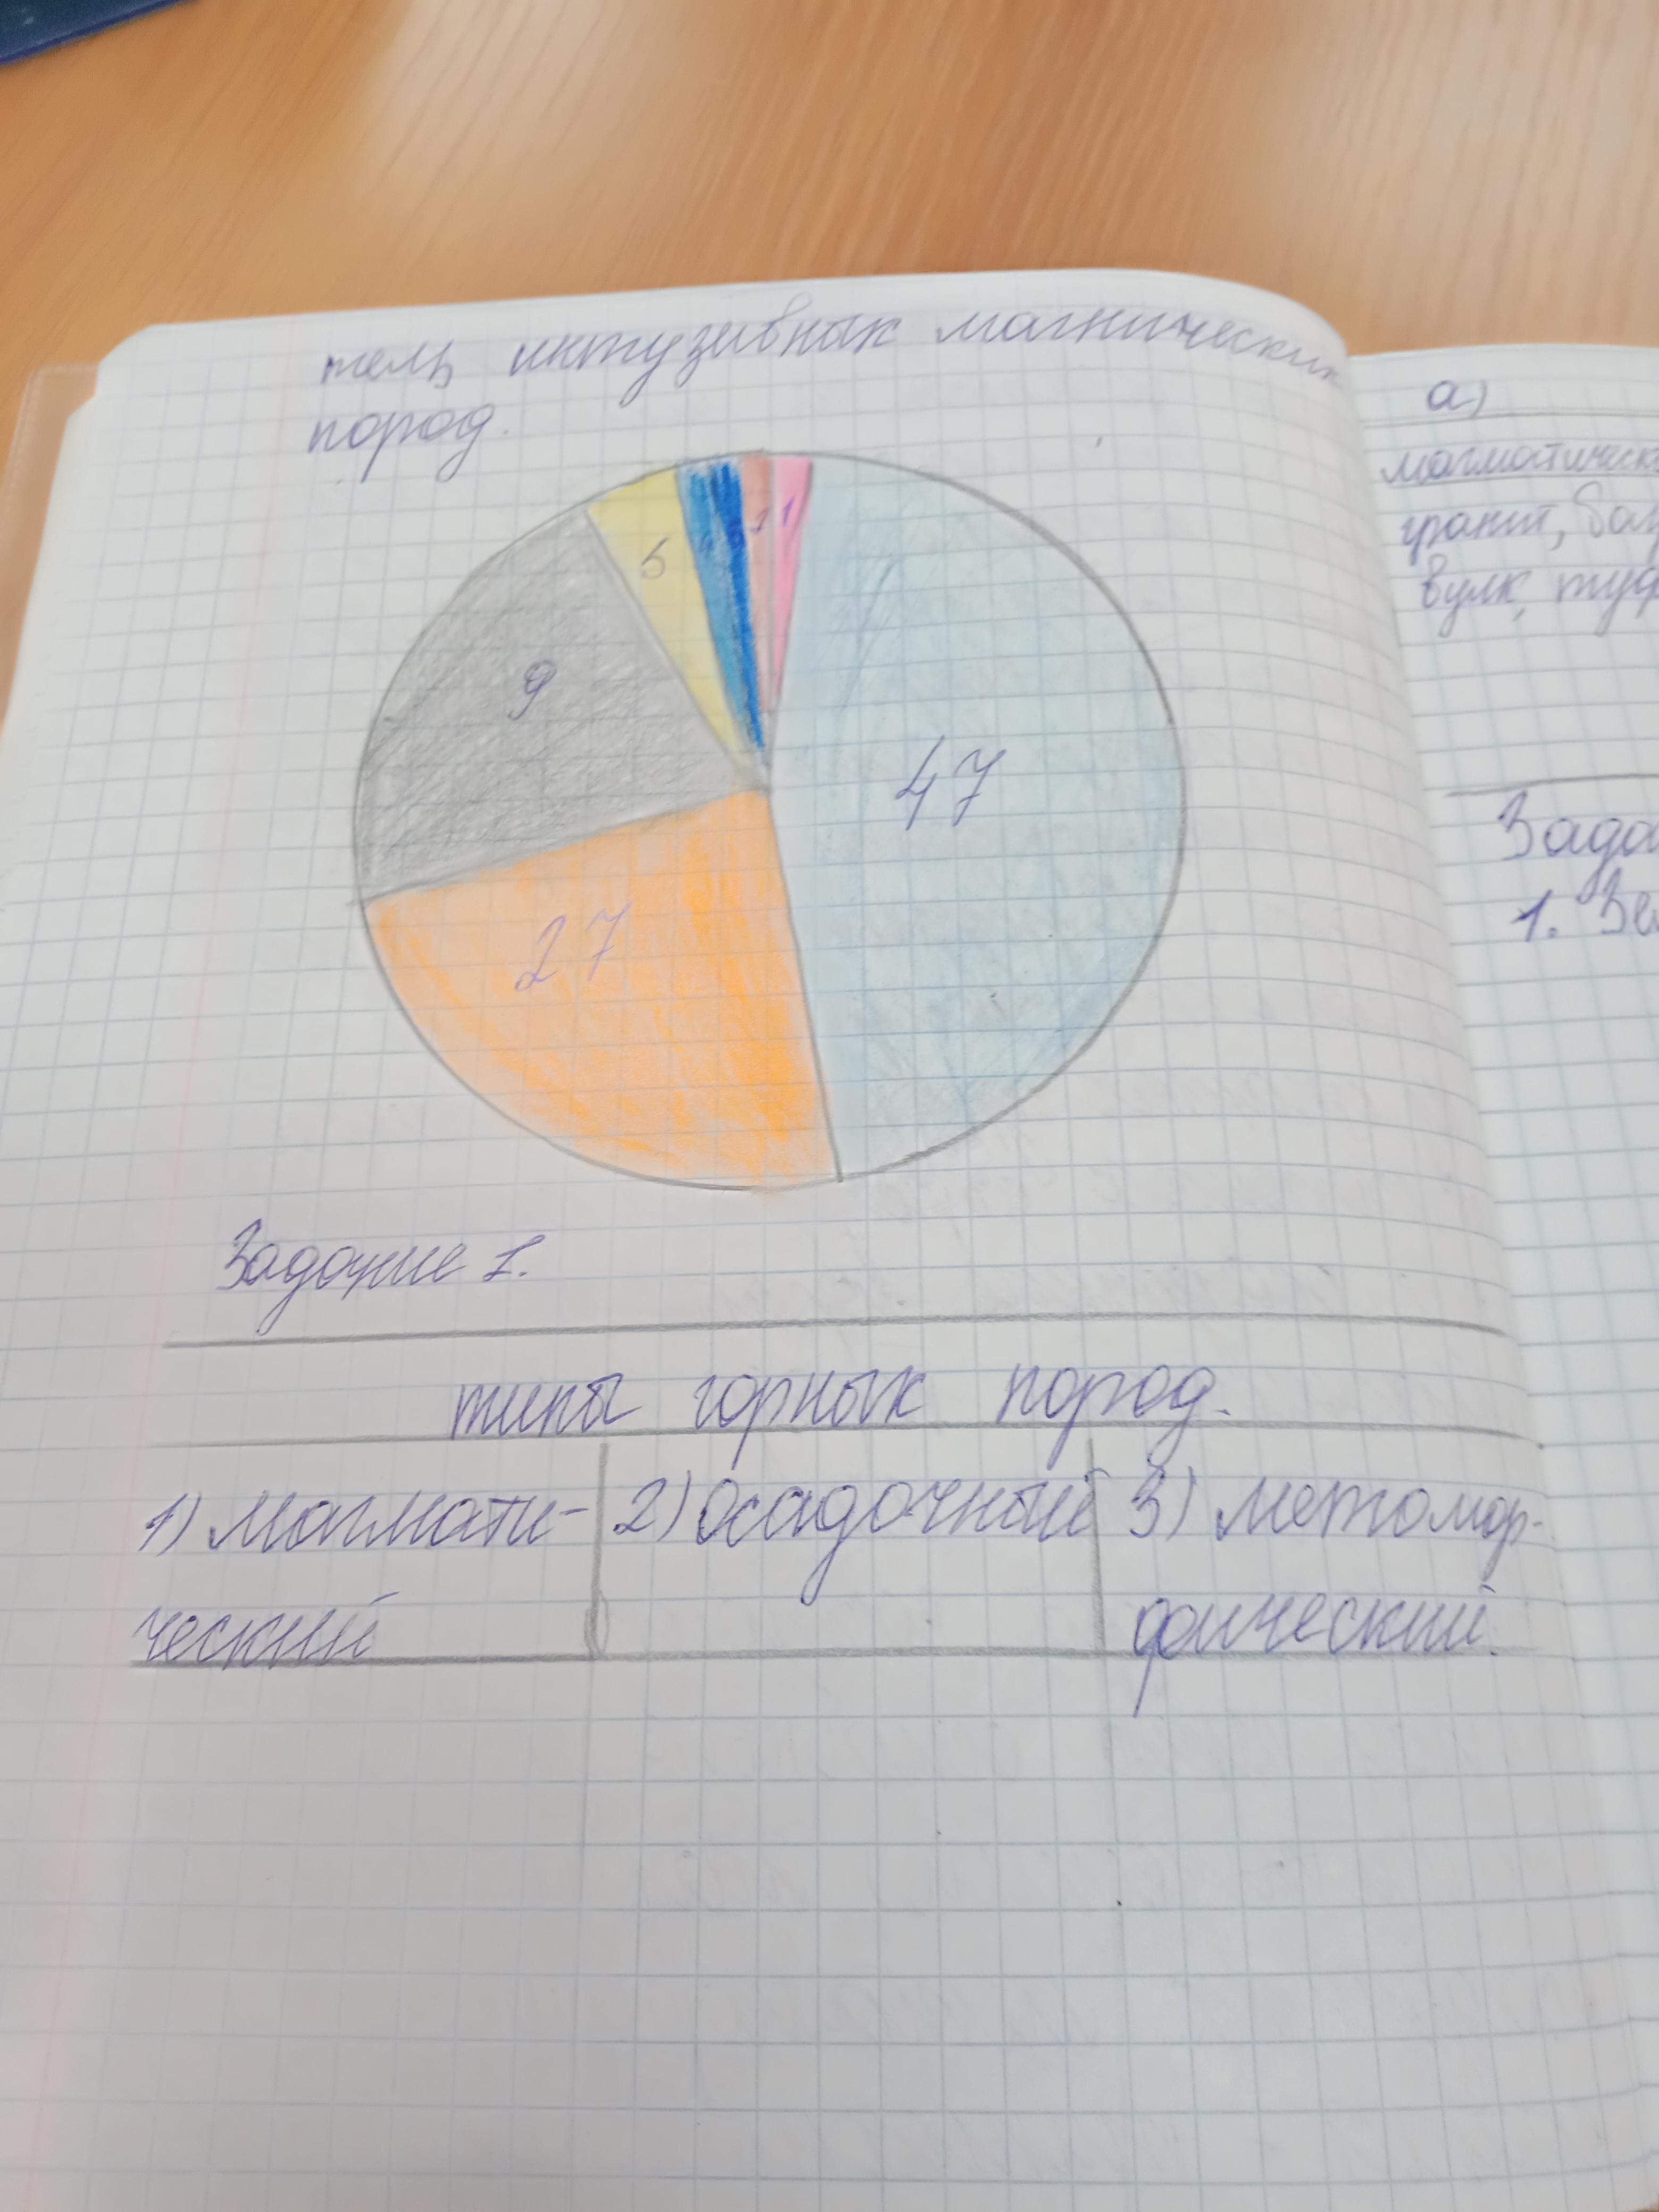 тель интузивных магнических
пород.
5
1
1
9
47
27
Задание 1.
типы горных пород.
1) магмати-
ческий
2) Осадочный
3) метомор-
фический.
а)
магматическ
гранит, баз
вулк, туф
Зада
1. Зе